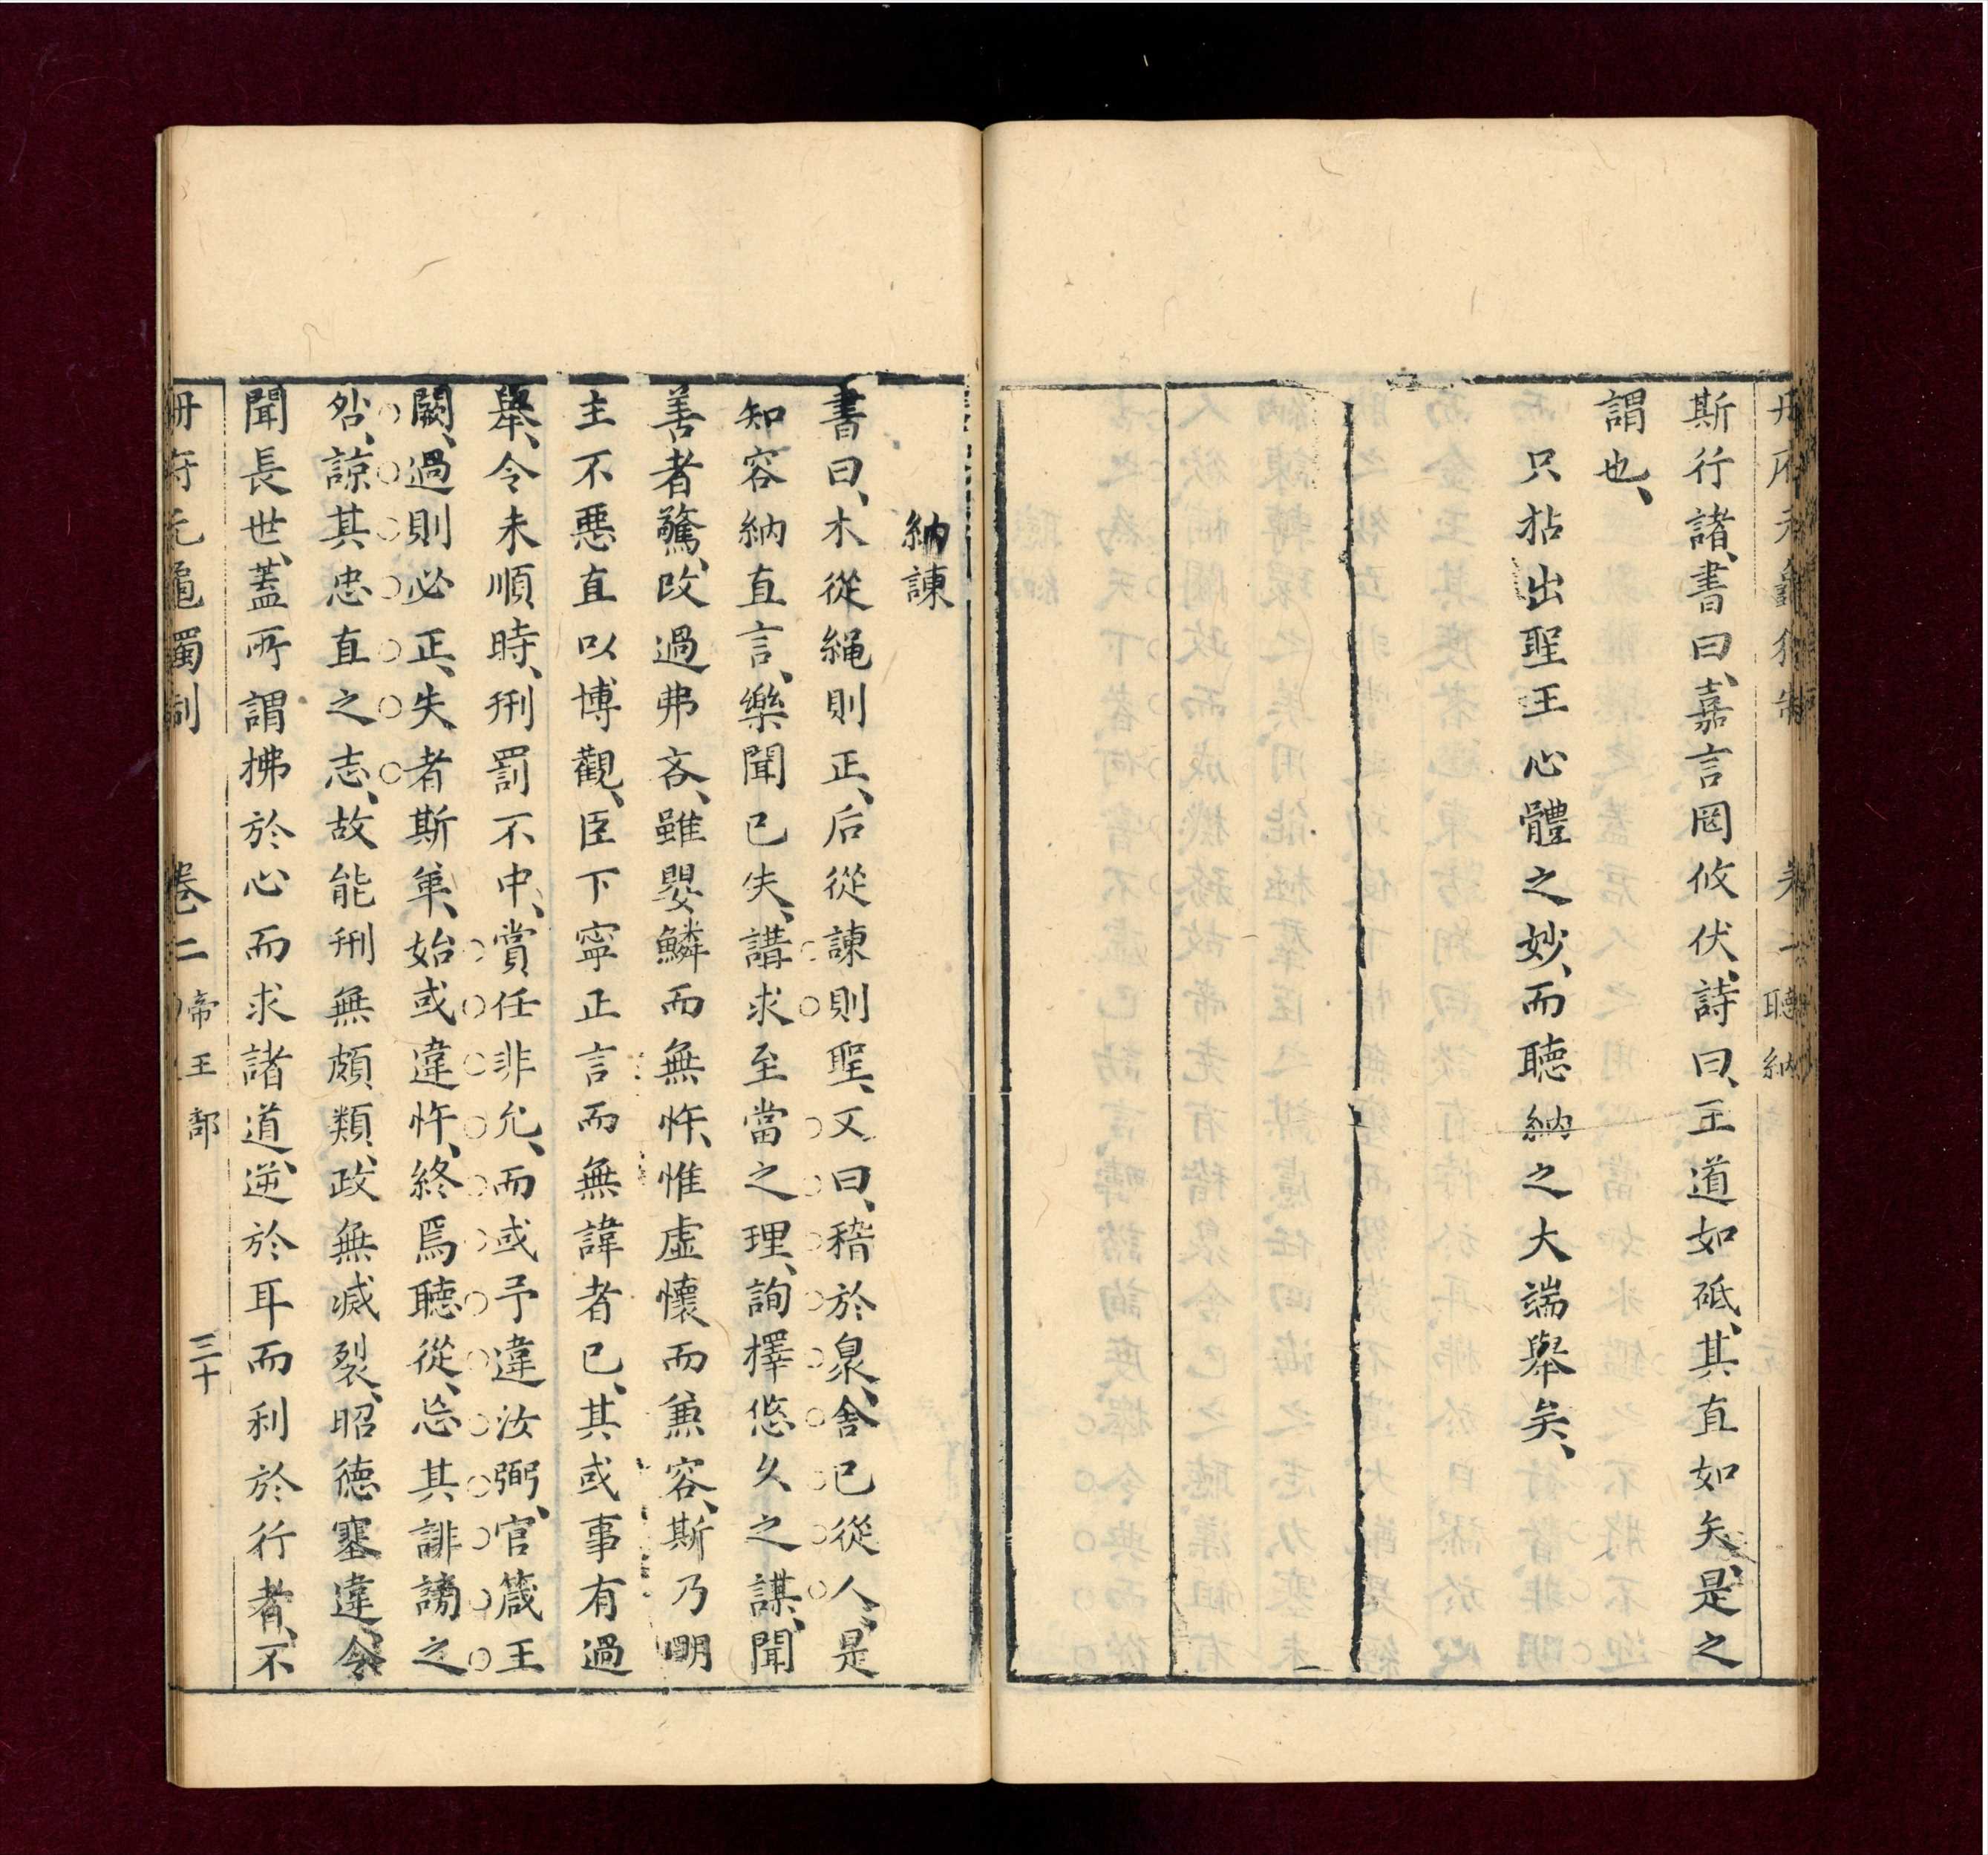 聽納
斯行諸、書曰、嘉言罔攸伏、詩曰、王道如砥、其直如矢、是之
謂也、
只拈出聖王心體之妙、而聽納之大端舉矣、
納諫
書曰、木從繩則正、后從諫則聖、又曰、稽於衆、舍己從人、是
知容納直言、樂聞已失、講求至當之理、詢擇悠久之謀、聞
善者驚、改過弗吝、雖嬰鱗而無忤、惟虛懷而兼容、斯乃明
主不惡直以博觀、臣下寧正言而無諱者已、其或事有過
舉、令未順時、刑罰不中、賞任非允、而或予違汝弼、官箴王
闕、過則必正、失者斯革、始或違忤、終焉聽從、忘其誹謗之
咎、諒其忠直之志、故能刑無頗類、政無減裂、昭德塞違、令
聞長世、蓋所謂拂於心而求諸道、逆於耳而利於行者、不
冊府元龜獨制 卷二 帝王部 三十